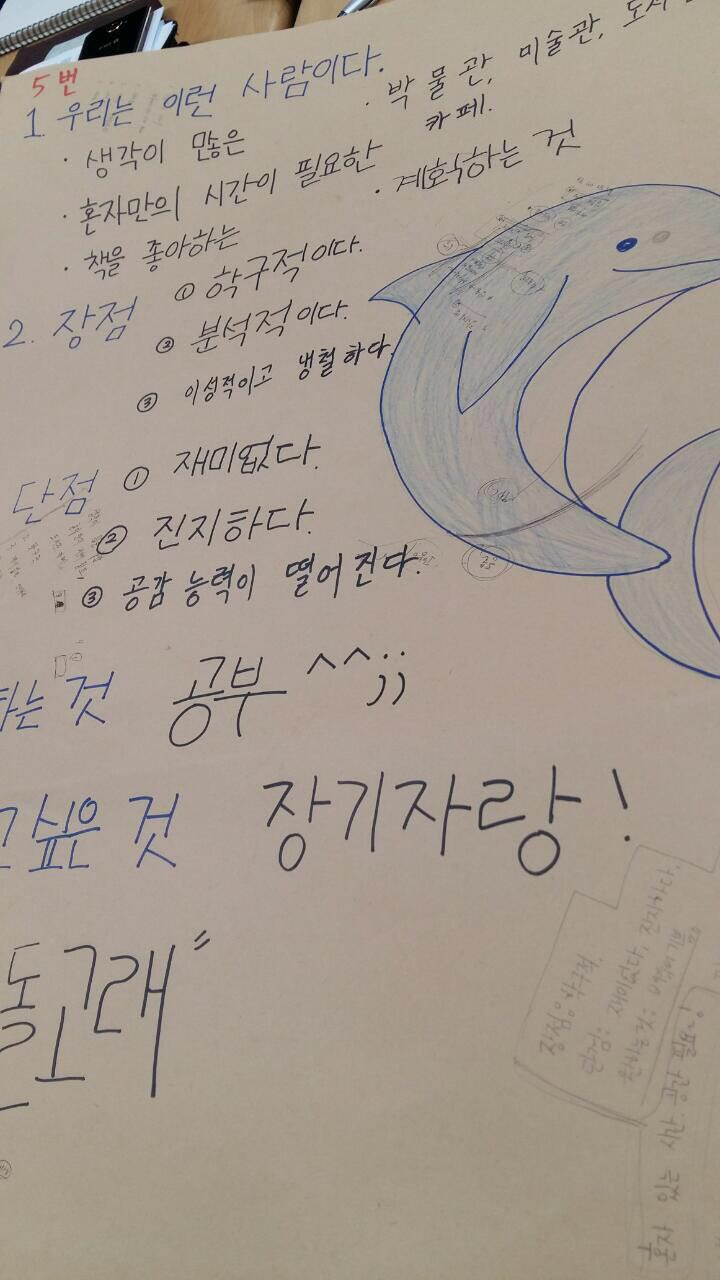 5번
1. 우리는 이런 사람이다.
· 생각이 많은
· 혼자만의 시간이 필요한
· 책을 좋아하는
· 박물관, 미술관,
카페.
· 계획하는 것
2. 장점 ① 학구적이다.
② 분석적이다.
③ 이성적이고 냉철하다.
단점 ① 재미없다.
② 진지하다.
③ 공감 능력이 떨어진다.
하는 것 공부 ^^;;
고 싶은 것 장기자랑!
돌고래"
장점: 학구적
단점: 재미없다, 진지하다